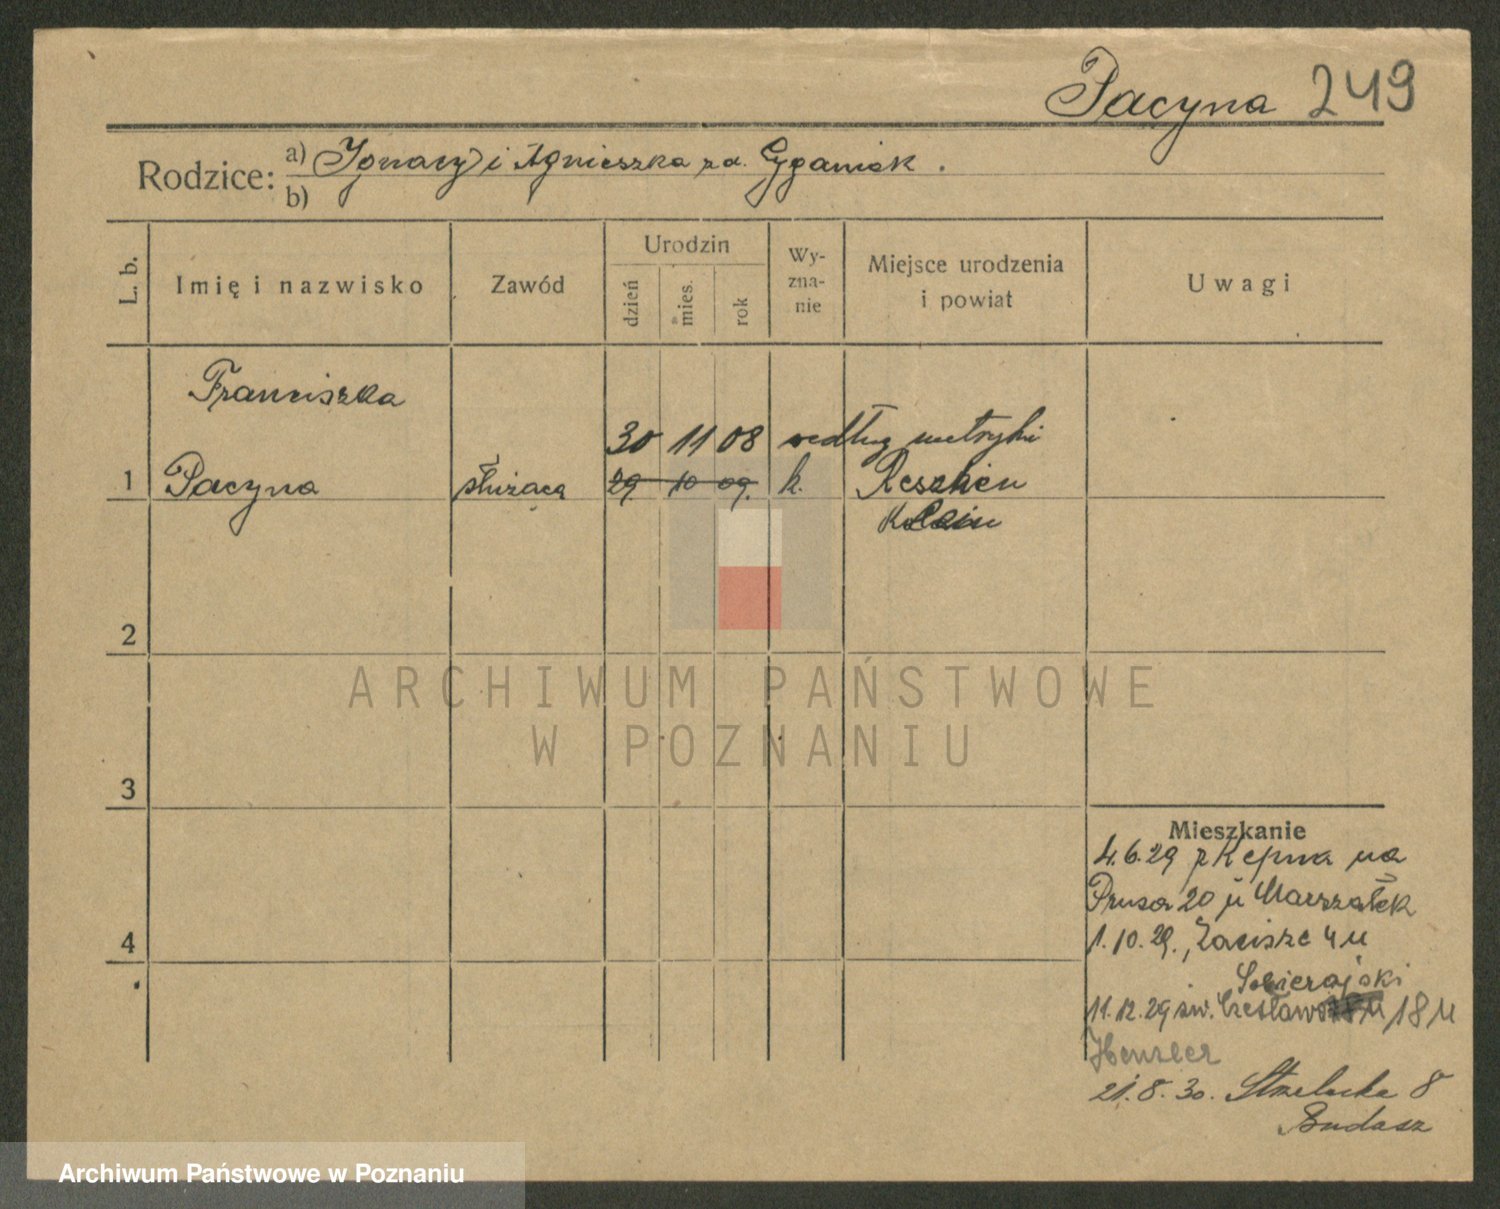 Pacyna 249
Rodzice: a) Ignacy i Agnieszka zd. Cyganiak.
b)
L. b. Imię i nazwisko Zawód Urodzin dzień mies. rok Wy-zna-nie Miejsce urodzenia i powiat Uwagi
Franciszka
30 11 08 według metryki
1 Pacyna służąca 29. 10 09. k.
2
ARCHIWUM PAŃSTWOWE
W POZNANIU
3
Mieszkanie
4.6.29 z Kępna na
Prusa 20 u Marszałek
4
1.10.29., Zacisze 4 u
Sobierajski
11.12.29 św. Czesława 18 u
21.8.30. Strzelecka 8
Budasz
Archiwum Państwowe w Poznaniu